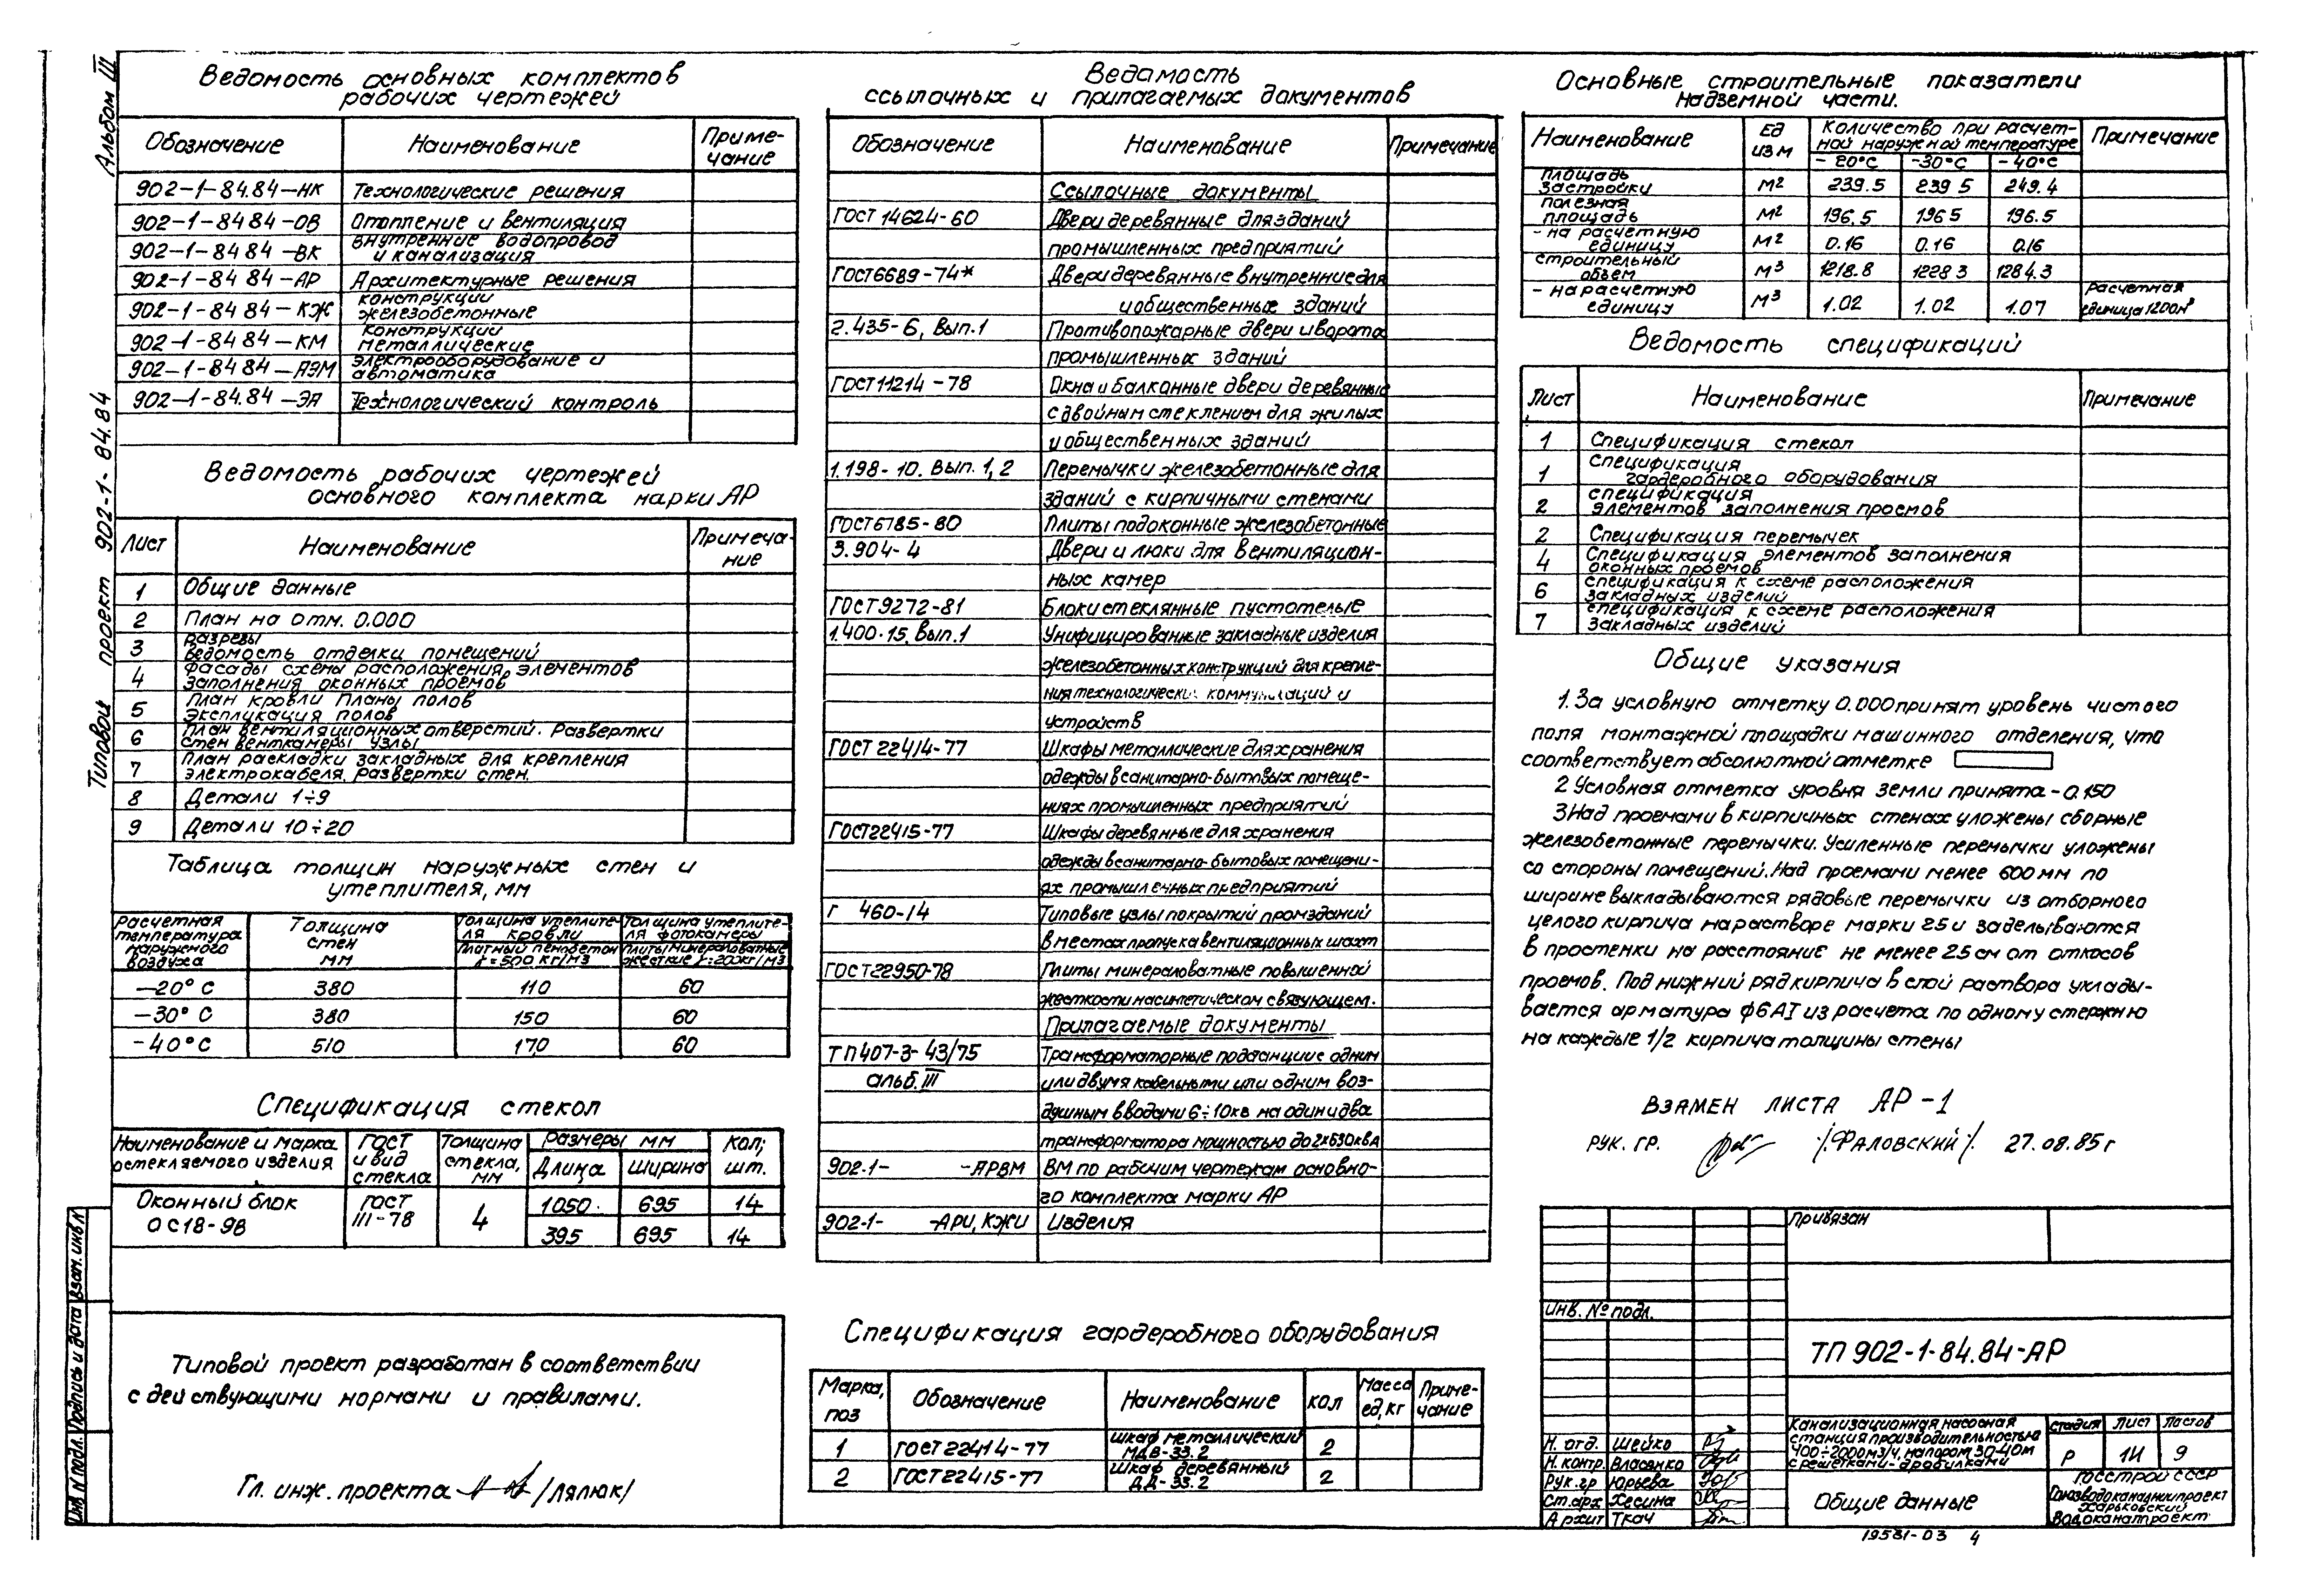 Альбом III
Типовой проект 902-1-84.84
Ведомость основных комплектов
рабочих чертежей
Обозначение Наименование Приме-
чание
902-1-84.84-НК Технологические решения
902-1-84 84-ОВ Отопление и вентиляция
902-1-84 84-ВК внутренние водопровод
и канализация
902-1-84 84-АР Архитектурные решения
902-1-84 84-КЖ конструкции
железобетонные
902-1-84 84-КМ конструкции
металлические
902-1-84 84-АЭМ электрооборудование и
автоматика
902-1-84.84-ЭА Технологический контроль
Ведомость рабочих чертежей
основного комплекта марки АР
Лист Наименование Примеча-
ние
1 Общие данные
2 План на отм. 0.000
3 разрезы
Ведомость отделки помещений
4 Фасады схемы расположения элементов
заполнения оконных проемов
5 План кровли Планы полов
Экспликация полов
6 План вентиляционных отверстий. Развертки
стен венткамеры Узлы
7 План раскладки закладных для крепления
электрокабеля. Развертки стен.
8 Детали 1÷9
9 Детали 10÷20
Таблица толщин наружных стен и
утеплителя, мм
Расчетная
температура
наружного
воздуха
Толщина
стен
мм
Толщина утеплите-
ля кровли
Плитный пенобетон
γ=500 кг/м3
Толщина утеплите-
ля фотокамеры
Плиты минераловатные
жесткие γ=200кг/м3
-20° С 380 110 60
-30° С 380 150 60
-40° С 510 170 60
Спецификация стекол
Наименование и марка
остекляемого изделия
ГОСТ
и вид
стекла
Толщина
стекла,
мм
Размеры мм
Длина Ширина
Кол;
шт.
Оконный блок
ОС18-9В
ГОСТ
111-78
4
1050 695 14
395 695 14
Типовой проект разработан в соответствии
с действующими нормами и правилами.
Гл. инж. проекта /Лялюк/
Инв. N подл. Подпись и дата Взам. инв N
Ведомость
ссылочных и прилагаемых документов
Обозначение Наименование Примечание
Ссылочные документы
ГОСТ 14624-60 Двери деревянные для зданий
промышленных предприятий
ГОСТ6689-74* Двери деревянные внутренние для
и общественных зданий
2.435-6, Вып.1 Противопожарные двери и ворота
промышленных зданий
ГОСТ11214-78 Окна и балконные двери деревянные
с двойным стеклением для жилых
и общественных зданий
1.198-10. Вып. 1,2 Перемычки железобетонные для
зданий с кирпичными стенами
ГОСТ6785-80 Плиты подоконные железобетонные
3.904-4 Двери и люки для вентиляцион-
ных камер
ГОСТ9272-81 Блоки стеклянные пустотелые
1.400-15. Вып.1 Унифицированные закладные изделия
железобетонных конструкций для крепле-
ния технологических коммуникаций и
устройств
ГОСТ 22414-77 Шкафы металлические для хранения
одежды в санитарно-бытовых помеще-
ниях промышленных предприятий
ГОСТ22415-77 Шкафы деревянные для хранения
одежды в санитарно-бытовых помещени-
ях промышленных предприятий
Г 460-14 Типовые узлы покрытий промзданий
в местах пропуска вентиляционных шахт
ГОСТ22950-78 Плиты минераловатные повышенной
жесткости на синтетическом связующем.
Прилагаемые документы
ТП407-3-43/75 Трансформаторные подстанции с одним
альб. III или двумя кабельными или одним воз-
душным вводами 6÷10кв на один и два
трансформатора мощностью до 2х630кВА
902-1- -АРВМ ВМ по рабочим чертежам основно-
го комплекта марки АР
902-1- -АРИ, КЖИ Изделия
Спецификация гардеробного оборудования
Марка,
поз
Обозначение Наименование кол Масса
ед, кг
Приме-
чание
1 ГОСТ22414-77 шкаф металлический
МДВ-33.2 2
2 ГОСТ22415-77 Шкаф деревянный
ДД-33.2 2
Основные строительные показатели
надземной части.
Наименование Ед
изм
Количество при расчет-
ной наружной температуре
-20°С -30°С -40°С
Примечание
площадь
застройки м2 239.5 239 5 249.4
полезная
площадь м2 196.5 196 5 196.5
- на расчетную
единицу м2 0.16 0.16 0.16
строительный
объем м3 1218.8 1228 3 1284.3
- на расчетную
единицу м3 1.02 1.02 1.07 Расчетная
единица 1200м3
Ведомость спецификаций
Лист Наименование Примечание
1 Спецификация стекол
1 Спецификация
гардеробного оборудования
2 спецификация
элементов заполнения проемов
2 Спецификация перемычек
4 Спецификация элементов заполнения
оконных проемов
6 спецификация к схеме расположения
закладных изделий
7 спецификация к схеме расположения
закладных изделий
Общие указания
1. За условную отметку 0.000 принят уровень чистого
пола монтажной площадки машинного отделения, что
соответствует абсолютной отметке
2 Условная отметка уровня земли принята -0.150
3 Над проемами в кирпичных стенах уложены сборные
железобетонные перемычки. Усиленные перемычки уложены
со стороны помещений. Над проемами менее 600 мм по
ширине выкладываются рядовые перемычки из отборного
целого кирпича на растворе марки 25 и заделываются
в простенки на расстояние не менее 25 см от откосов
проемов. Под нижний ряд кирпича в слой раствора уклады-
вается арматура ф6АI из расчета по одному стержню
на каждые 1/2 кирпича толщины стены
ВЗАМЕН ЛИСТА АР-1
РУК. ГР. /ФАЛОВСКИЙ/ 27.08.85г
Привязан
Инв. № подл.
ТП 902-1-84.84-АР
Н. отд. Шейко
Н. контр. Власенко
Рук. гр Юрьева
Ст. арх Хесина
Архит Ткач
Канализационная насосная
станция производительностью
400÷2000м3/ч, напором 30-40м
с решетками-дробилками
стадия Лист Листов
Р 1И 9
Общие данные
Госстрой СССР
Союзводоканалниипроект
Харьковский
Водоканалпроект
19581-03 4